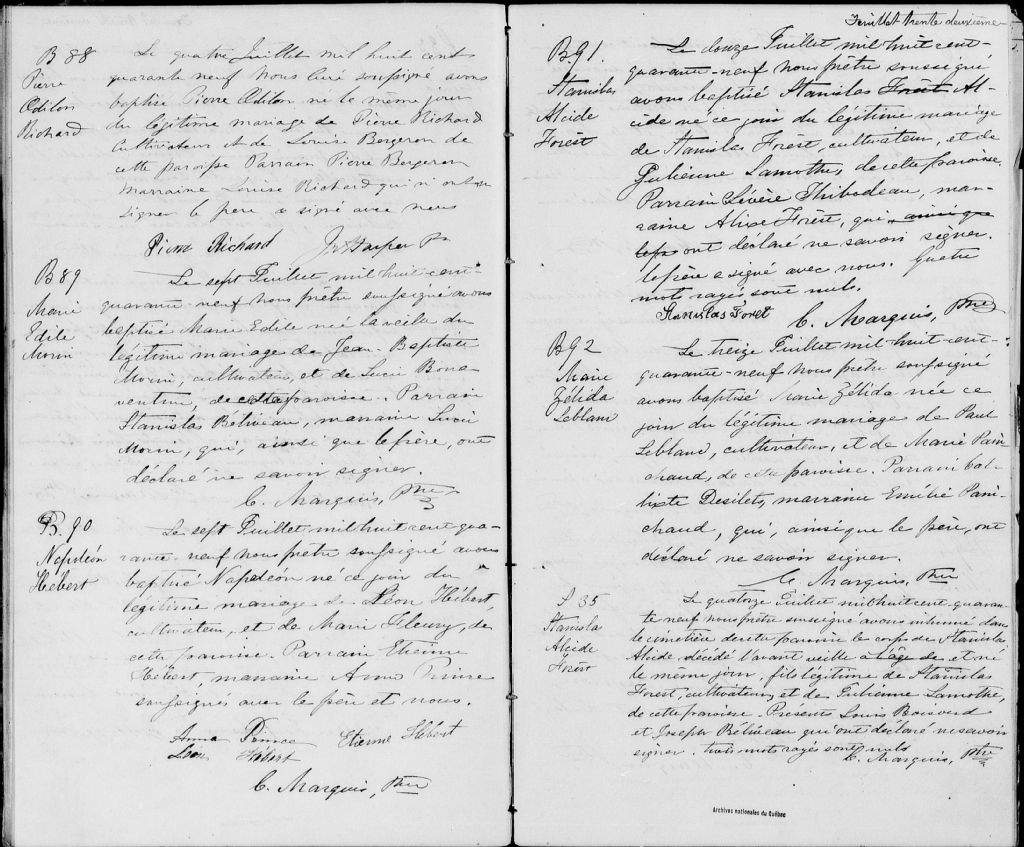 B 88
Pierre
Odilon
Richard
Le quatre Juillet mil huit cent
quarante neuf Nous curé soussigné avons
baptisé Pierre Odilon né le même jour
du légitime mariage de Pierre Richard
Cultivateur et de Louise Bergeron de
cette paroisse Parrain Pierre Bergeron
Marraine Louise Richard qui n'ont su
signer le père a signé avec nous
Pierre Richard
Harper Ptr
B 89
Marie
Edile
Morin
Le sept Juillet mil huit cent-
quarante neuf nous prêtre soussigné avons
baptisé Marie Edile née la veille du
légitime mariage de Jean-Baptiste
Morin, cultivateur, et de Lucie Bona-
venture, de cette paroisse. Parrain
Stanislas Béliveau, marraine Lucie
Morin, qui, ainsi que le père, ont
déclaré ne savoir signer.
C. Marquis, Ptre
B. 90
Napoléon
Hébert
Le sept Juillet mil huit cent qua-
rante-neuf nous prêtre soussigné avons
baptisé Napoléon né ce jour du
légitime mariage de Léon Hébert,
cultivateur, et de Marie Fleury, de
cette paroisse. Parrain Etienne
Hébert, marraine Anna Prince
soussignés avec le père et nous.
Anna Prince
Etienne Hébert
Léon Hébert
C. Marquis, Ptre
Feuillet trente deuxième
B 91.
Stanislas
Alcide
Forêst
Le douze Juillet mil huit cent-
quarante-neuf nous prêtre soussigné
avons baptisé Stanislas Forêst Al-
cide né ce jour du légitime mariage
de Stanislas Forêst, cultivateur, et de
Julienne Lamothe, de cette paroisse.
Parrain Livère Thibodeau, mar-
raine Alise Forêst, qui ainsi que
le père ont déclaré ne savoir signer.
le père a signé avec nous. Quatre
mots rayés sont nuls.
Stanislas Foret
C. Marquis, Ptre
B 92
Marie
Zélida
Leblanc
Le treize Juillet mil huit cent-
quarante-neuf nous prêtre soussigné
avons baptisé Marie Zélida née ce
jour du légitime mariage de Paul
Leblanc, cultivateur, et de Marie Pani-
chaud, de cette paroisse. Parrain Bat-
tiste Desilets, marraine Emélie Pani-
chaud, qui, ainsi que le père, ont
déclaré ne savoir signer.
C. Marquis, Ptre
S 35
Stanislas
Alcide
Forêst
Le quatorze Juillet mil huit cent quaran-
te neuf nous prêtre soussigné avons inhumé dans
le cimetière de cette paroisse le corps de Stanislas
Alcide décédé l'avant veille à l'âge de et né
le même jour, fils légitime de Stanislas
Forest, cultivateur, et de Julienne Lamothe,
de cette paroisse. Présents Louis Boisverd
et Joseph Béliveau qui ont déclaré ne savoir
signer. trois mots rayés sont nuls
C. Marquis, Ptre
Archives nationales du Québec